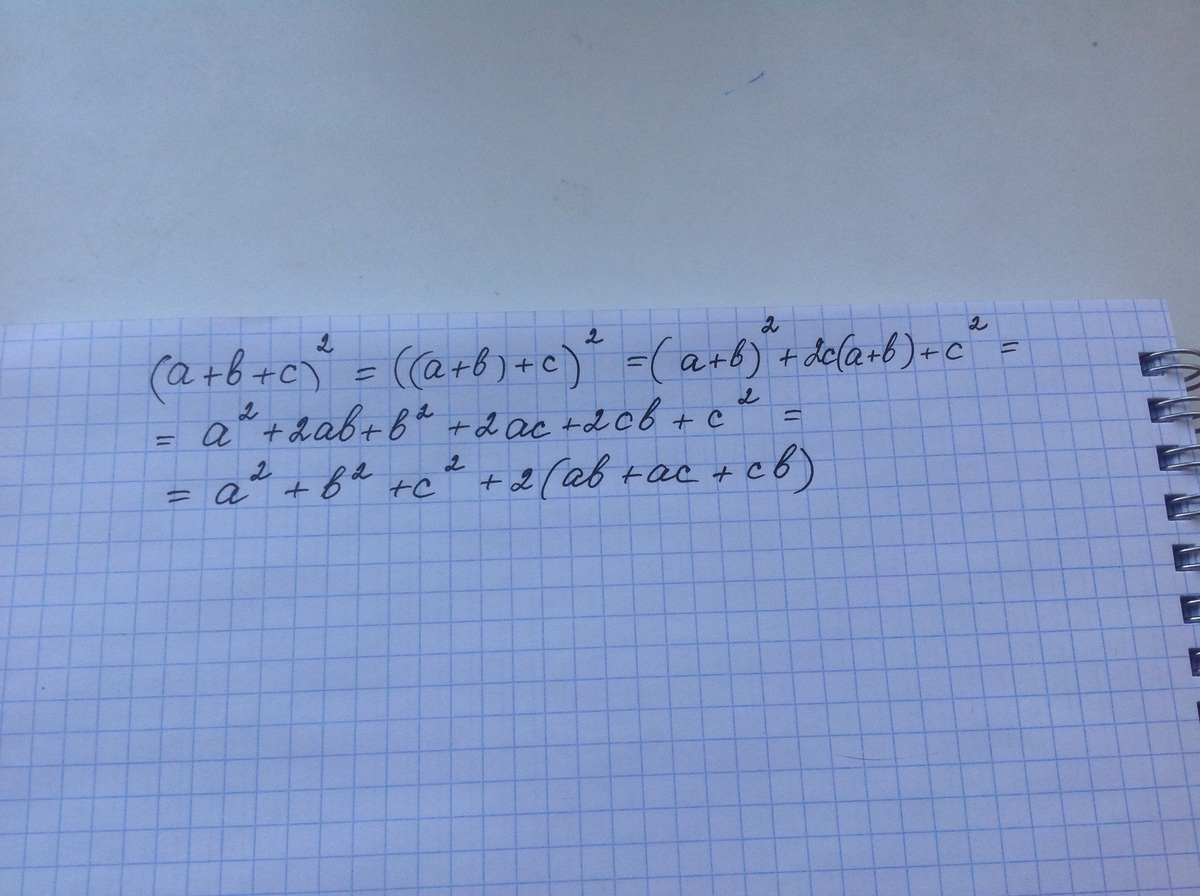 (a+b+c)² = ((a+b)+c)² = (a+b)² + 2c(a+b)+c² =
= a² +2ab+b² +2ac+2cb + c² =
= a² + b² +c² + 2(ab +ac + cb)